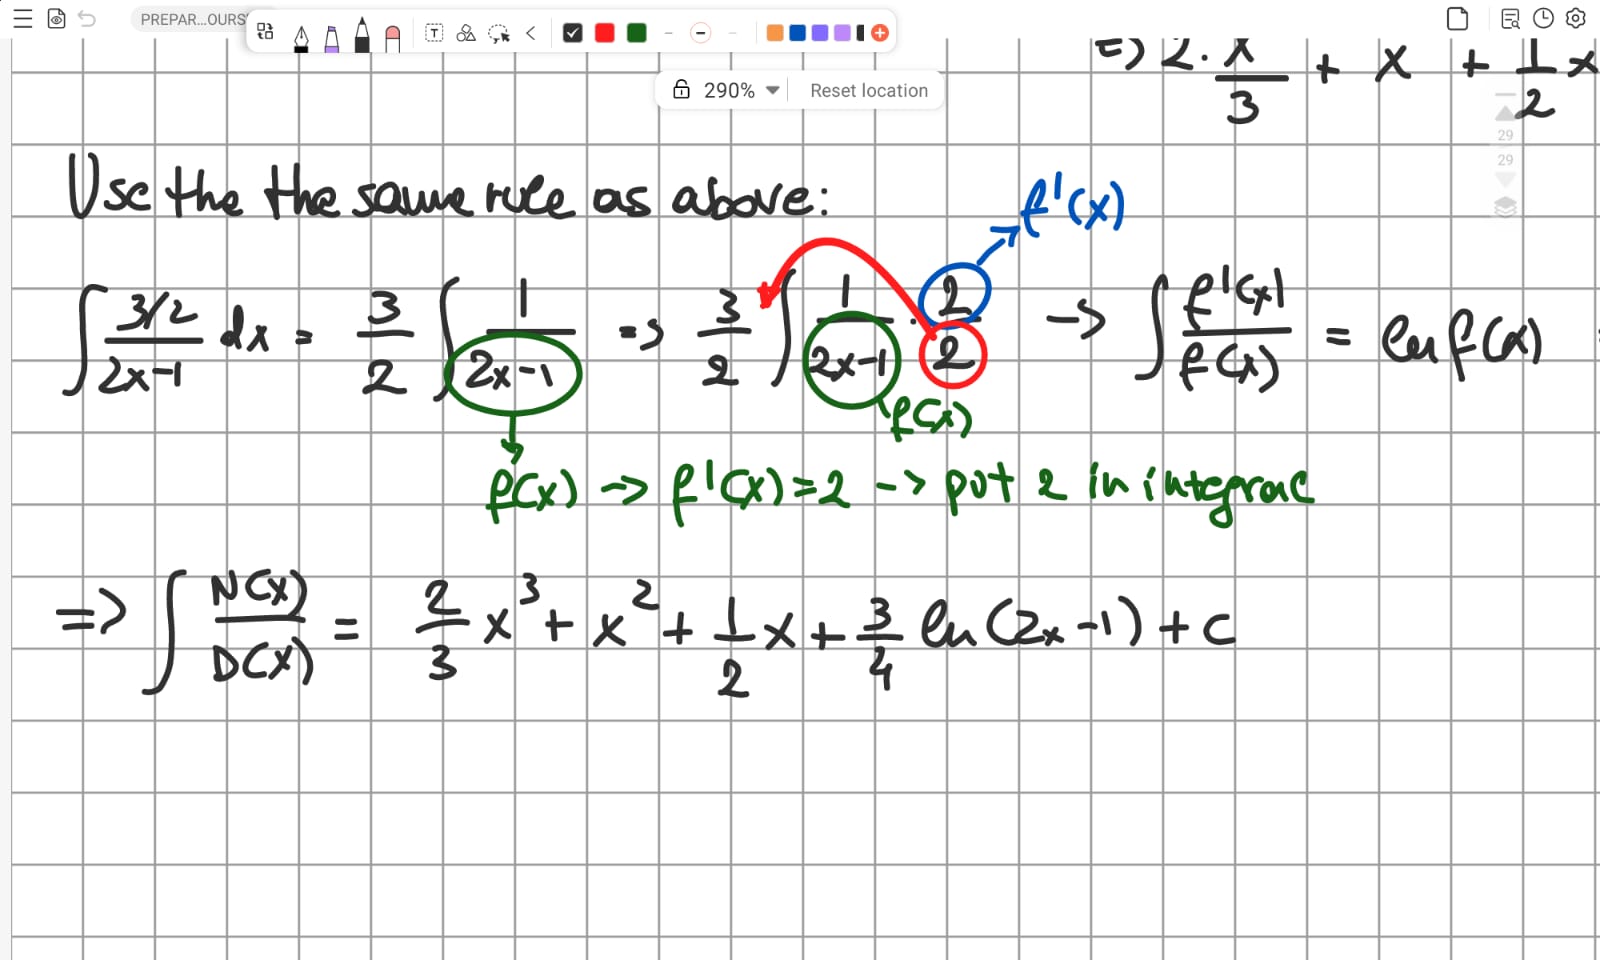 PREPAR...OURS
T
290% Reset location
=> 2. x/3 + x + 1/2 x
29
29
Use the the same rule as above:
f'(x)
∫ 3/2 / 2x-1 dx = 3/2 ∫ 1 / 2x-1 => 3/2 ∫ 1 / 2x-1 · 2/2 -> ∫ f'(x) / f(x) = ln f(x)
f(x)
f(x) -> f'(x)=2 -> put 2 in integral
=> ∫ N(x) / D(x) = 2/3 x³ + x² + 1/2 x + 3/4 ln(2x-1) + c